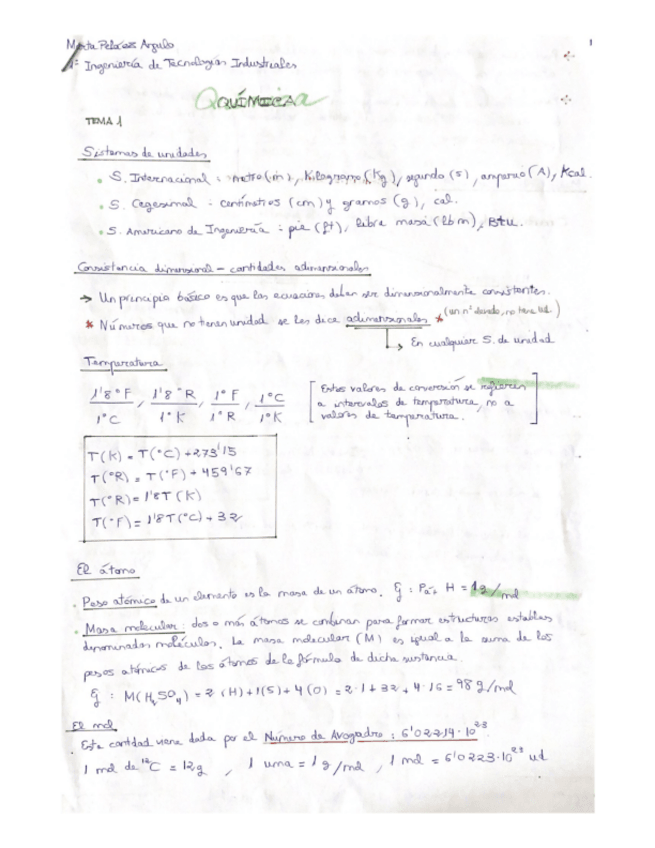 Marta Peláez Angulo
1
1º Ingeniería de Tecnologías Industriales
QUÍMICA
TEMA 1
Sistemas de unidades
• S. Internacional : metro (m), Kilogramo (Kg), segundo (s), amperio (A), Kcal.
• S. Cegesimal : centímetros (cm) y gramos (g), cal.
• S. Americano de Ingeniería : pie (ft), libra masa (lbm), Btu.
Consistencia dimensional – cantidades adimensionales
→ Un principio básico es que las ecuaciones deben ser dimensionalmente consistentes.
* Números que no tienen unidad se les dice adimensionales * (un nº , no tiene ud.)
→ En cualquier S. de unidad
Temperatura
1'8ºF/1ºC , 1'8ºR/1ºK , 1ºF/1ºR , 1ºC/1ºK
[Estos valores de conversión se refieren
a intervalos de temperatura, no a
valores de temperatura.]
T(K) = T(ºC) + 273'15
T(ºR) = T(ºF) + 459'67
T(ºR) = 1'8 T(K)
T(ºF) = 1'8 T(ºC) + 32
El átomo
. Peso atómico de un elemento es la masa de un átomo. Ej : Pat H = 1g/mol
• Masa molecular : dos o más átomos se combinan para formar estructuras estables
denominadas moléculas. La masa molecular (M) es igual a la suma de los
pesos atómicos de los átomos de la fórmula de dicha sustancia.
Ej : M(H₂SO₄) = 2(H) + 1(S) + 4(O) = 2·1 + 32 + 4·16 = 98 g/mol
El mol
. Esta cantidad viene dada por el Número de Avogadro : 6'02214·10²³
1 mol de ¹²C = 12g , 1 uma = 1g/mol , 1 mol = 6'0223·10²³ ud